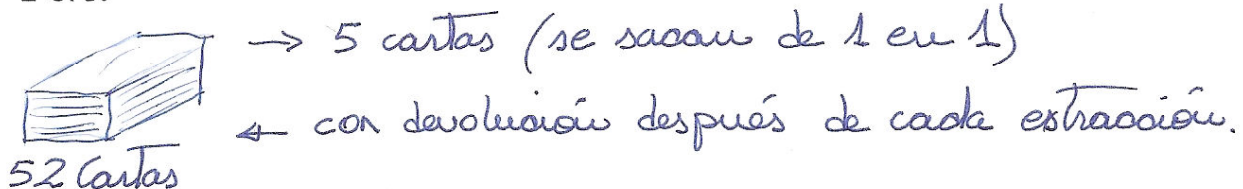 → 5 cartas (se sacan de 1 en 1)
← con devolución después de cada extracción.
52 Cartas